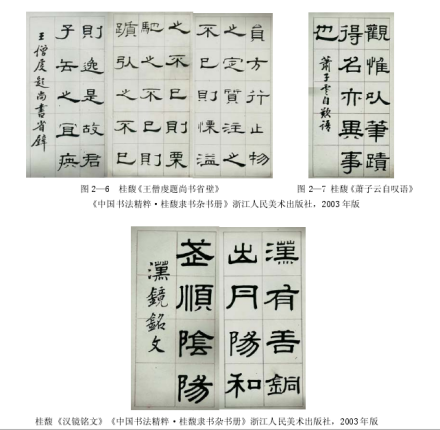 員方行止物
之定質注之
不已則溢
之不已則栗
馳之不已則
躓弘之不已
則逸是故君
子去之宜疾
王僧虔題尚書省壁
觀惟以筆蹟
得名亦異事
也
蕭子雲自歎語
图 2—6 桂馥《王僧虔题尚书省壁》
图 2—7 桂馥《萧子云自叹语》
《中国书法精粹·桂馥隶书杂书册》浙江人民美术出版社，2003 年版
漢有善銅
出丹陽和
順陰陽
漢鏡銘文
桂馥《汉镜铭文》《中国书法精粹·桂馥隶书杂书册》浙江人民美术出版社，2003 年版